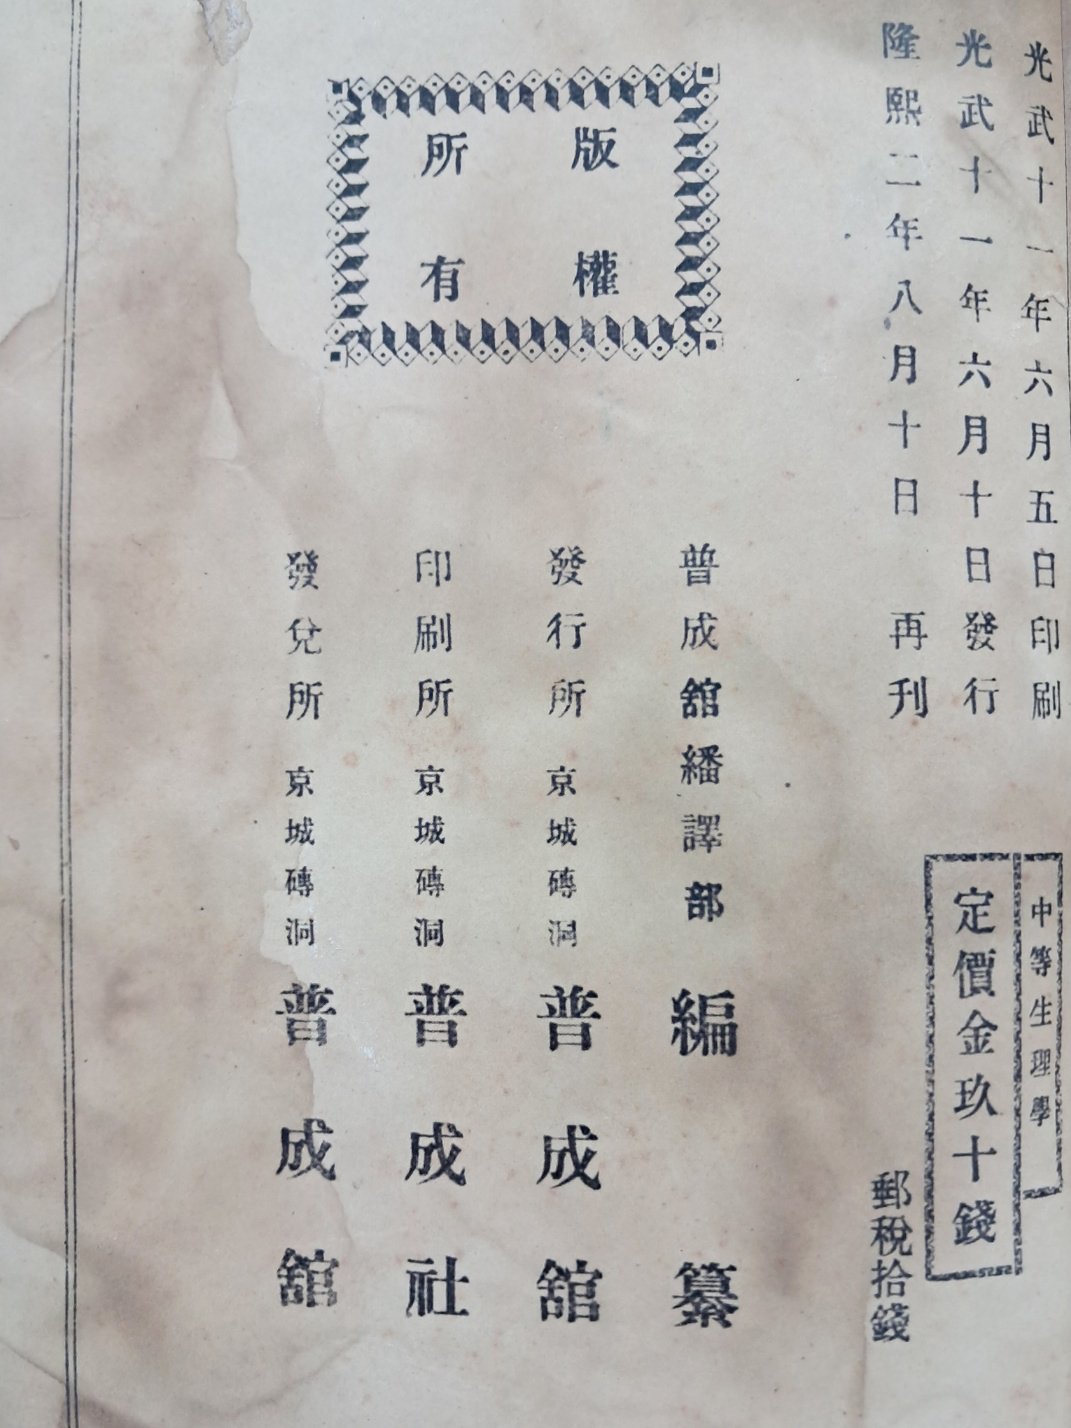 光武十一年六月五日印刷
光武十一年六月十日發行
隆熙二年八月十日 再刊
中等生理學
定價金玖十錢
郵稅拾錢
版權
所有
普成舘繙譯部 編纂
發行所 京城磚洞 普成舘
印刷所 京城磚洞 普成社
發兌所 京城磚洞 普成舘